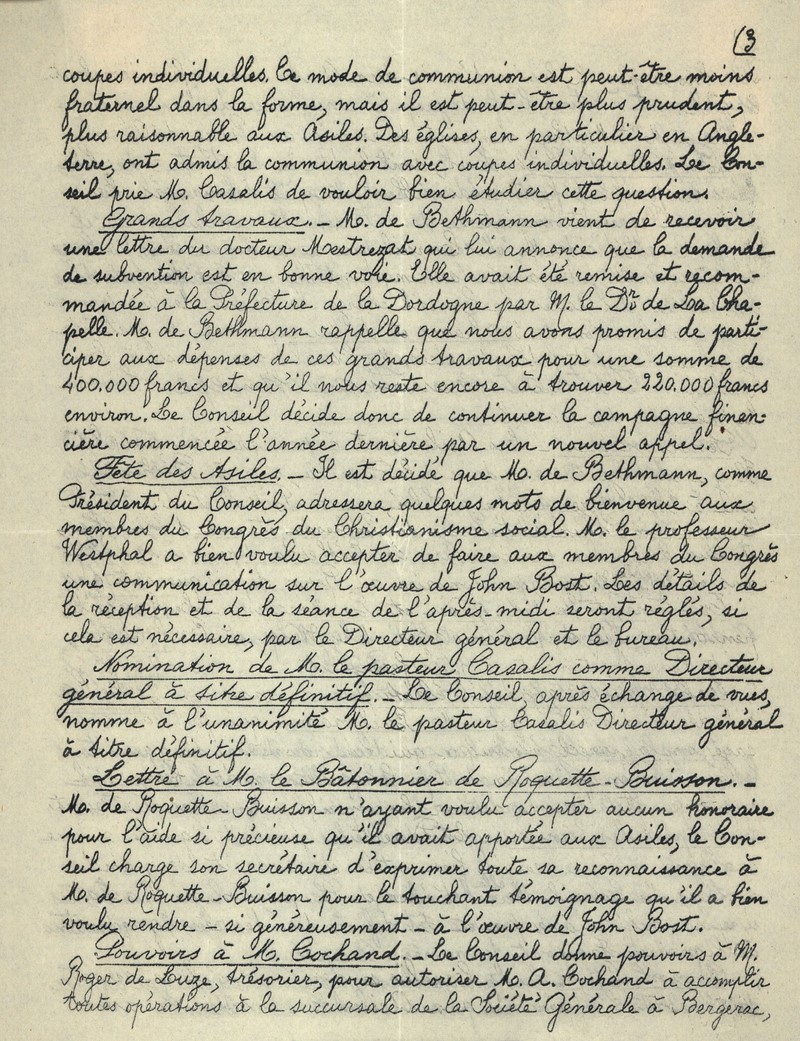 (3
coupes individuelles. Ce mode de communion est peut-être moins
fraternel dans la forme, mais il est peut-être plus prudent,
plus raisonnable aux Asiles. Des églises, en particulier en Angle-
terre, ont admis la communion avec coupes individuelles. Le Con-
seil prie M. Casalis de vouloir bien étudier cette question.
Grands travaux. - M. de Bethmann vient de recevoir
une lettre du docteur Mestrezat qui lui annonce que la demande
de subvention est en bonne voie. Elle avait été remise et recom-
mandée à la Préfecture de la Dordogne par M. le Dr de La Cha-
pelle. M. de Bethmann rappelle que nous avons promis de parti-
ciper aux dépenses de ces grands travaux pour une somme de
400.000 francs et qu'il nous reste encore à trouver 220.000 francs
environ. Le Conseil décide donc de continuer la campagne finan-
cière commencée l'année dernière par un nouvel appel.
Fête des Asiles. - Il est décidé que M. de Bethmann, comme
Président du Conseil, adressera quelques mots de bienvenue aux
membres du Congrès du Christianisme social. M. le professeur
Westphal a bien voulu accepter de faire aux membres du Congrès
une communication sur l'œuvre de John Bost. Les détails de
la réception et de la séance de l'après-midi seront réglés, si
cela est nécessaire, par le Directeur général et le bureau.
Nomination de M. le pasteur Casalis comme Directeur
général à titre définitif. - Le Conseil, après échange de vues,
nomme à l'unanimité M. le pasteur Casalis Directeur général
à titre définitif.
Lettre à M. le Bâtonnier de Roquette-Buisson. -
M. de Roquette-Buisson n'ayant voulu accepter aucun honoraire
pour l'aide si précieuse qu'il avait apportée aux Asiles, le Con-
seil charge son secrétaire d'exprimer toute sa reconnaissance à
M. de Roquette-Buisson pour le touchant témoignage qu'il a bien
voulu rendre - si généreusement - à l'œuvre de John Bost.
Pouvoirs à M. Cochand. - Le Conseil donne pouvoirs à M.
Roger de Luze, trésorier, pour autoriser M. A. Cochand à accomplir
toutes opérations à la succursale de la Société Générale à Bergerac,